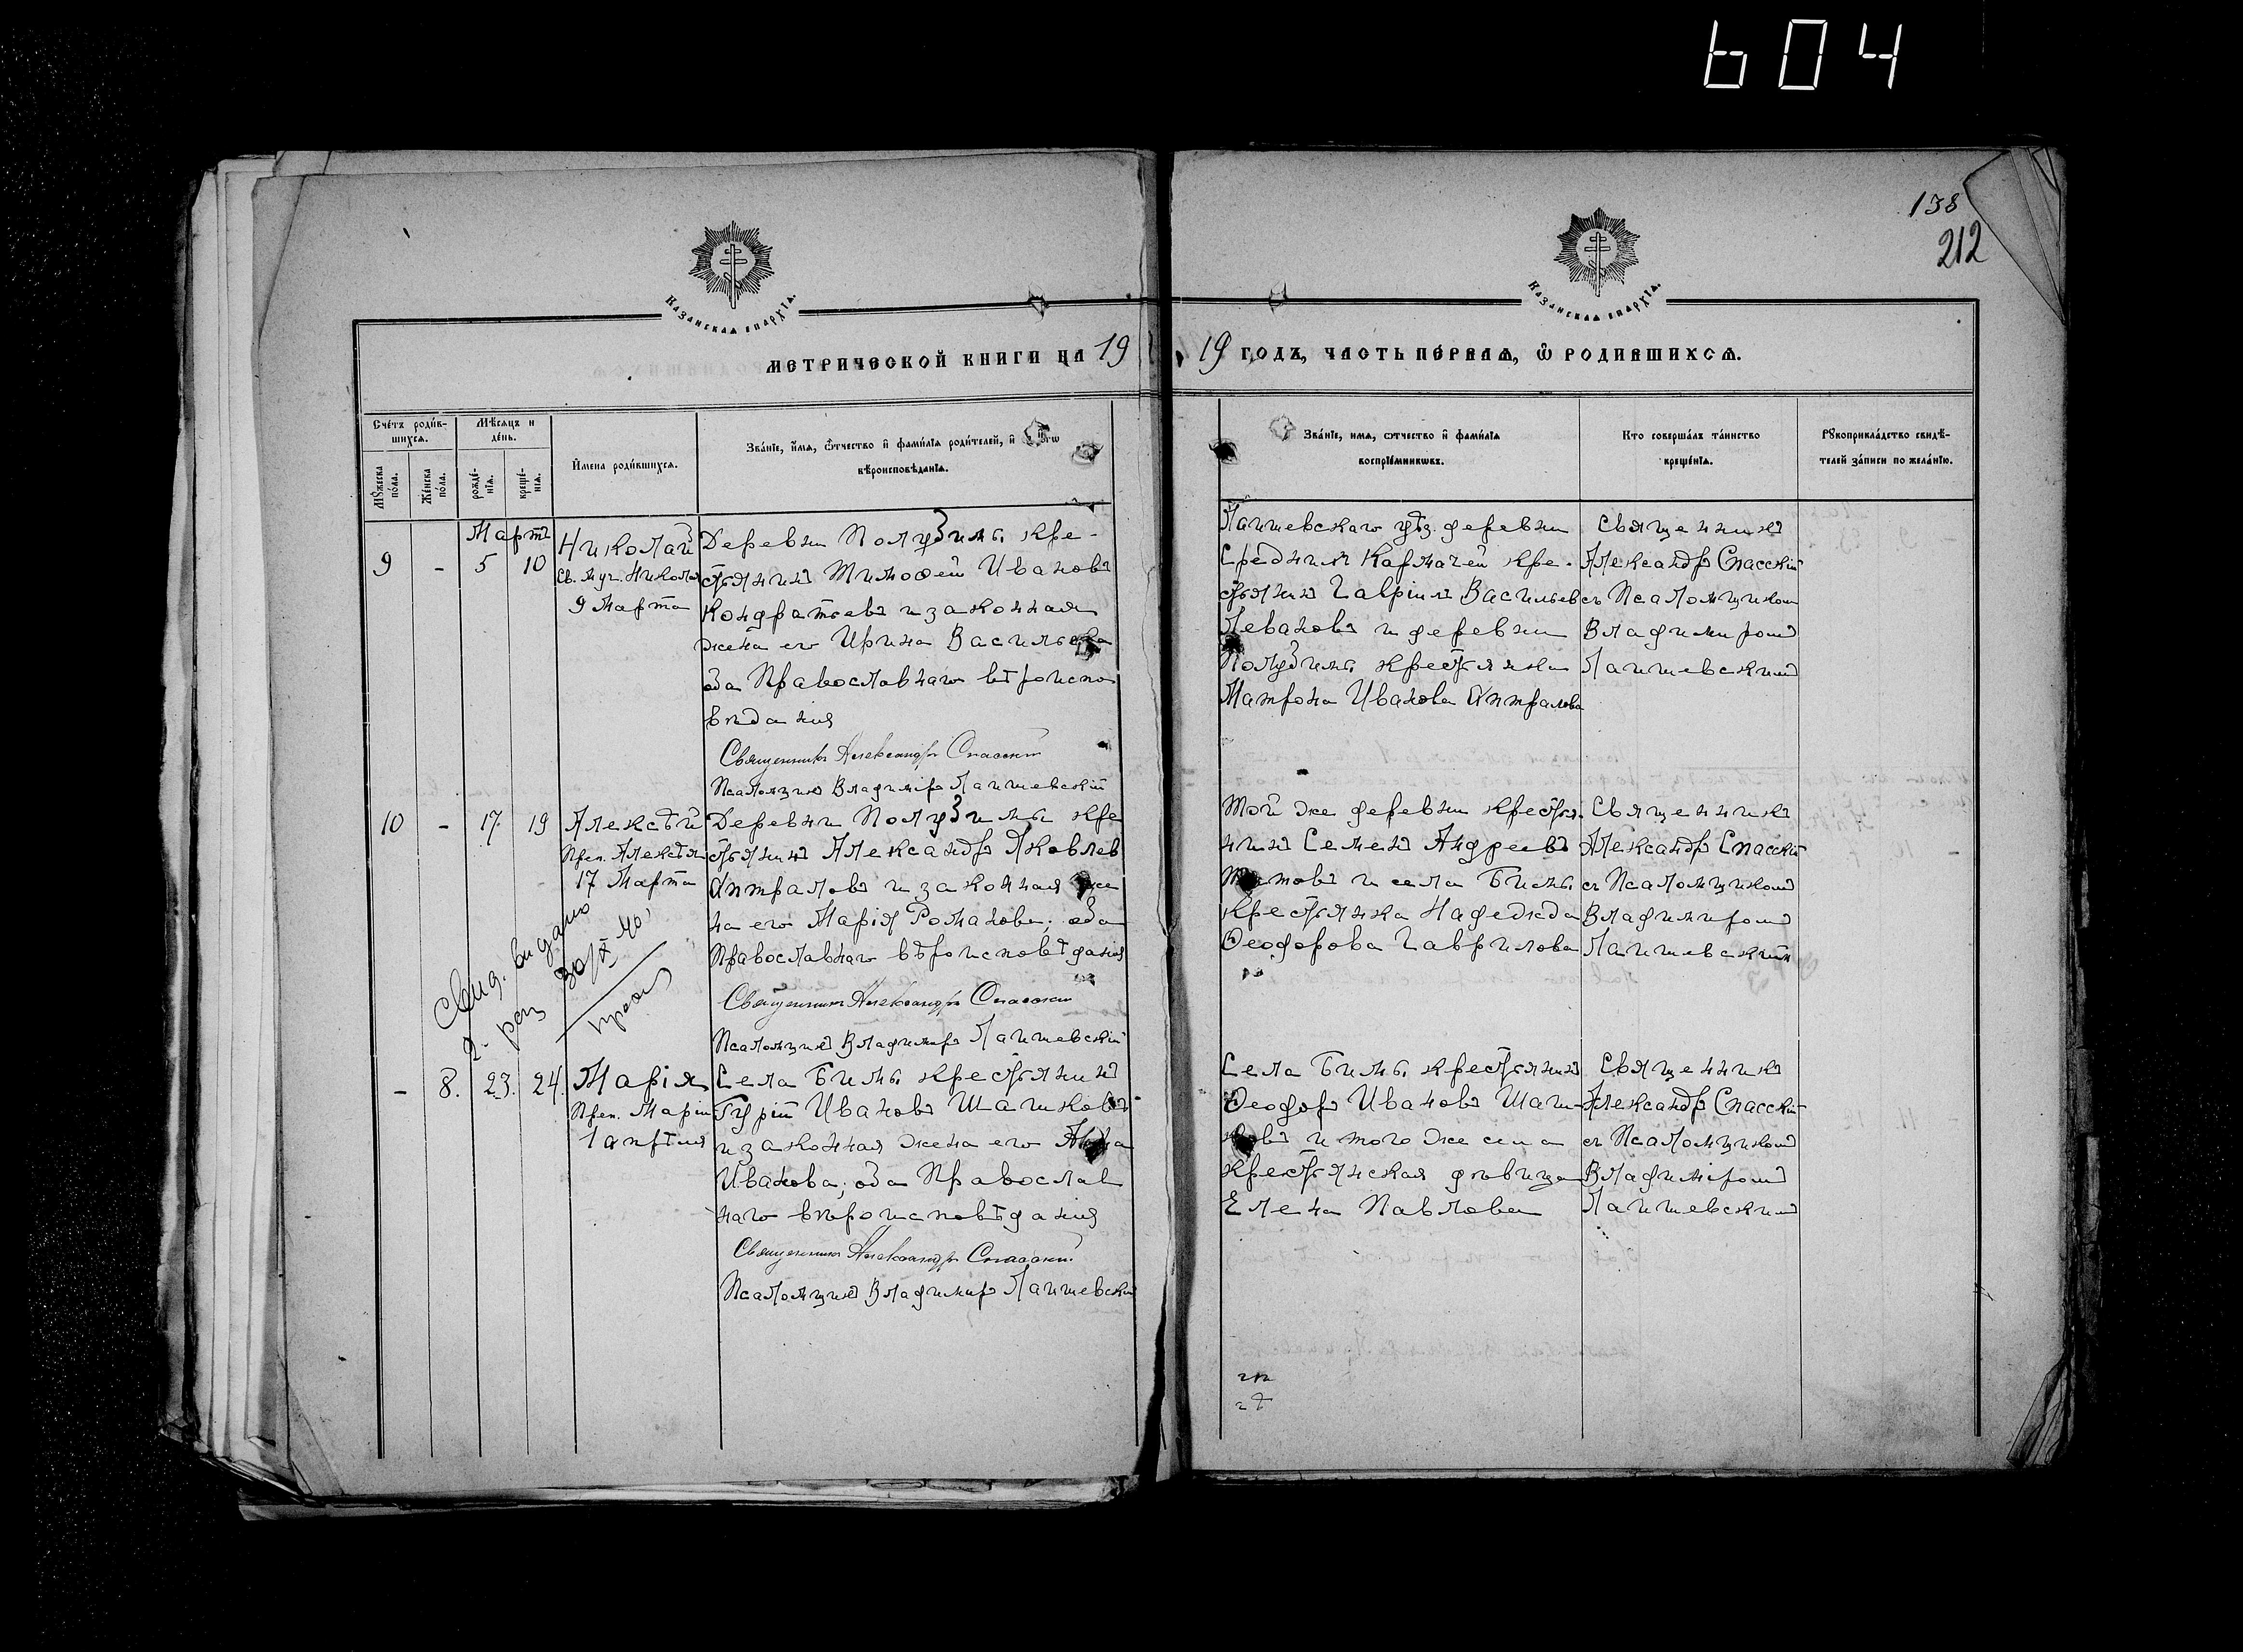 604
138
212
Казанская епархїѧ.
Казанская епархїѧ.
МЕТРИЧЕСКОЙ КНИГИ НА 19
19 ГОДЪ, ЧАСТЬ ПЕРВАѦ, Ѽ РОДИВШИХСѦ.
Счётъ роди́вшихсѧ.
Мѣ́сѧцъ и де́нь.
Мꙋ́жеска по́ла.
Же́нска по́ла.
рожде́нїѧ.
креще́нїѧ.
И҆мена роди́вшихсѧ.
Зва́нїе, и҆́мѧ, ѻ҆́тчество и҆ фами́лїѧ роди́телей, и҆
вѣроисповѣ́данїѧ.
Зва́нїе, имѧ, ѻтчество и҆ фами́лїѧ
воспрїе́мникѡвъ.
Кто совершалъ та́инство
креще́нїѧ.
Рꙋкоприкла́дство свидѣ́-
телей за́писи по жела́нїю.
Мартъ
9
-
5
10
Николай
Св. муч. Николая
9 Марта
Деревни Полузимы кре-
стьянинъ Тимоѳей Ивановъ
Кондратьевъ и законная
жена его Ирина Васильева
оба Православнаго вѣроиспо
вѣданія
Священникъ Александръ Спасскій
Псаломщикъ Владиміръ Лаишевскій
Лаишевскаго уѣз. деревни
Среднихъ Кармачей кре-
стьянинъ Гавріилъ Васильев
Левановъ и деревни
Полузимы крестьянка
Матрона Иванова
Священникъ
Александръ Спасскій
съ Псаломщикомъ
Владимиромъ
Лаишевскимъ
10
-
17
19
Алексѣй
Преп. Алексѣя
17 Марта
Деревни Полузимы кре
стьянинъ Александръ Яковлев
и законная же
на его Марія Романова; оба
Православнаго вѣроисповѣданія
Священникъ Александръ Спасскій
Псаломщикъ Владимиръ Лаишевскій
Той же деревни крестья-
нинъ Семенъ Андреевъ
и села Бимы
крестьянка Надежда
Ѳеодорова Гаврилова
Священникъ
Александръ Спасскій
съ Псаломщикомъ
Владимиромъ
Лаишевскимъ
Свид. выдано
30/X 40
-
8.
23.
24.
Марія
Преп. Маріи
1 апрѣля
Села Бимы крестьянинъ
Гурій Ивановъ Шашковъ
и законная жена его Анна
Иванова; оба Православ
наго вѣроисповѣданія
Священникъ Александръ Спасскій
Псаломщикъ Владимиръ Лаишевскій
Села Бимы крестьянинъ
Ѳеодоръ Ивановъ Шаш-
ковъ и того же села
крестьянская дѣвица
Елена Павлова
Священникъ
Александръ Спасскій
съ Псаломщикомъ
Владиміромъ
Лаишевскимъ